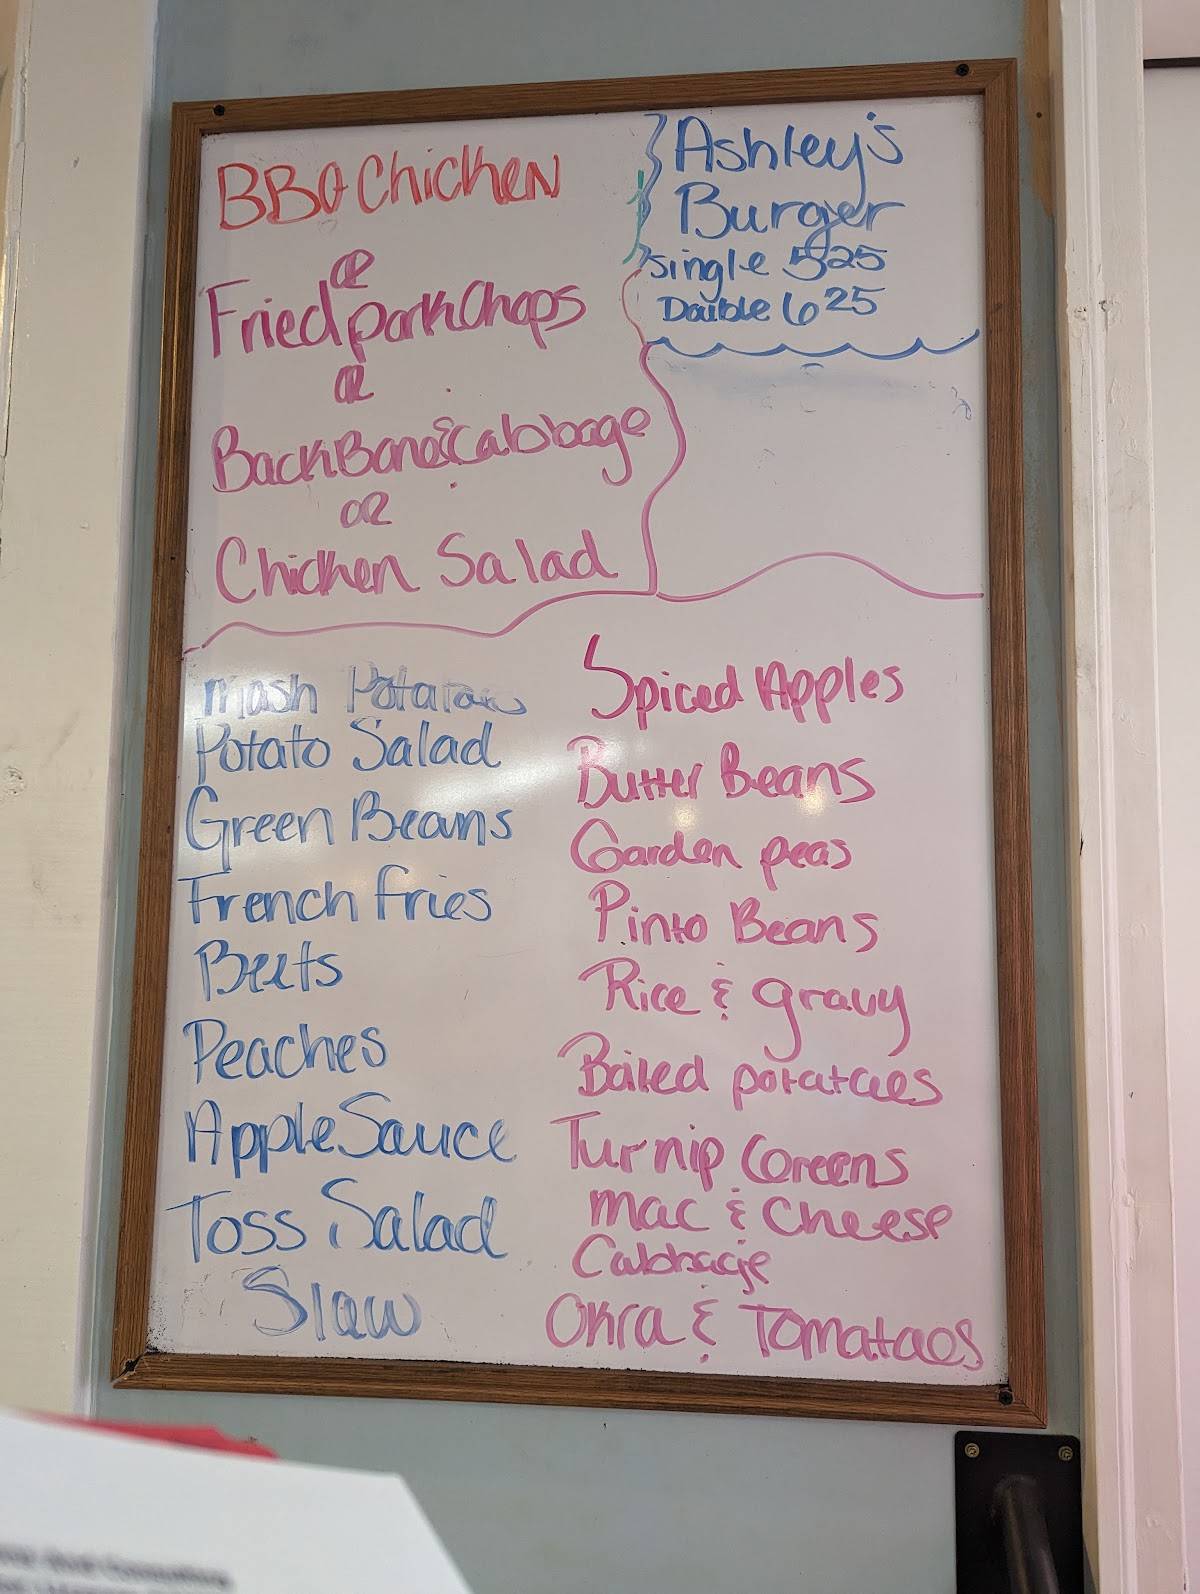 BBQ Chicken
or
Fried porkChops
or
BackBone & Cabbage
or
Chicken Salad
Ashley's
Burger
single 5 25
Double 6 25
mash Potatoes
Potato Salad
Green Beans
French fries
Beets
Peaches
AppleSauce
Toss Salad
Slaw
Spiced Apples
Butter Beans
Garden peas
Pinto Beans
Rice & gravy
Baked potatoes
Turnip Greens
mac & Cheese
Cabbage
Okra & Tomatoes